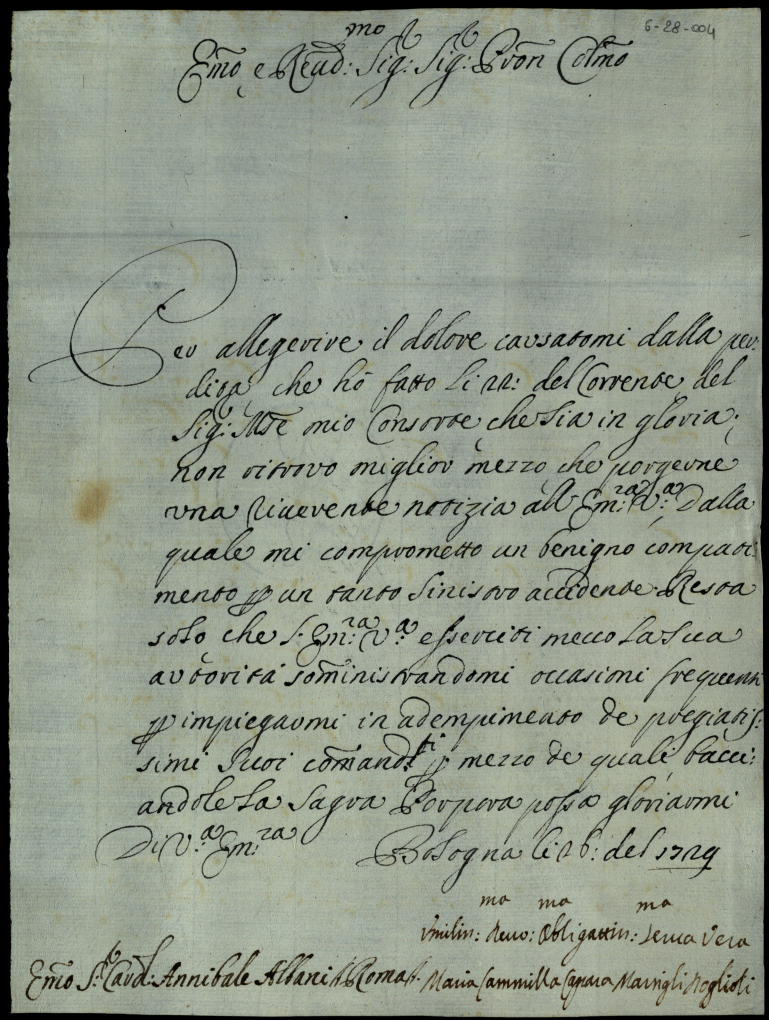 6-28-004
Emo e Reud:mo Sig: Sig: Pron Colmo
Per allegerire il dolore causatomi dalla per:
dita che hò fatto li 22: del Corrente del
Sig: Mse mio Consorte che sia in gloria;
non ritrovo miglior mezzo che porgerne
una riverente notizia all Em:za V:a Dalla
quale mi comprometto un benigno compati:
mento p un tanto sinistro accidente. Resta
solo che l'Em:za V:a esserciti meco la sua
autorità somministrandomi occasioni frequenti
p impiegarmi in adempimento de pregiatis:
simi Suoi comandti p mezzo de quali bacci:
andole la Sagra Porpora possa gloriarmi
Di V:a Em:za Bologna li 26: del 1729
Umilin:ma Devo: Obligattin:ma Serua Vera
Emo Sr Card: Annibale Albani Roma Maria Cammilla Caprara Marsigli Roglioli